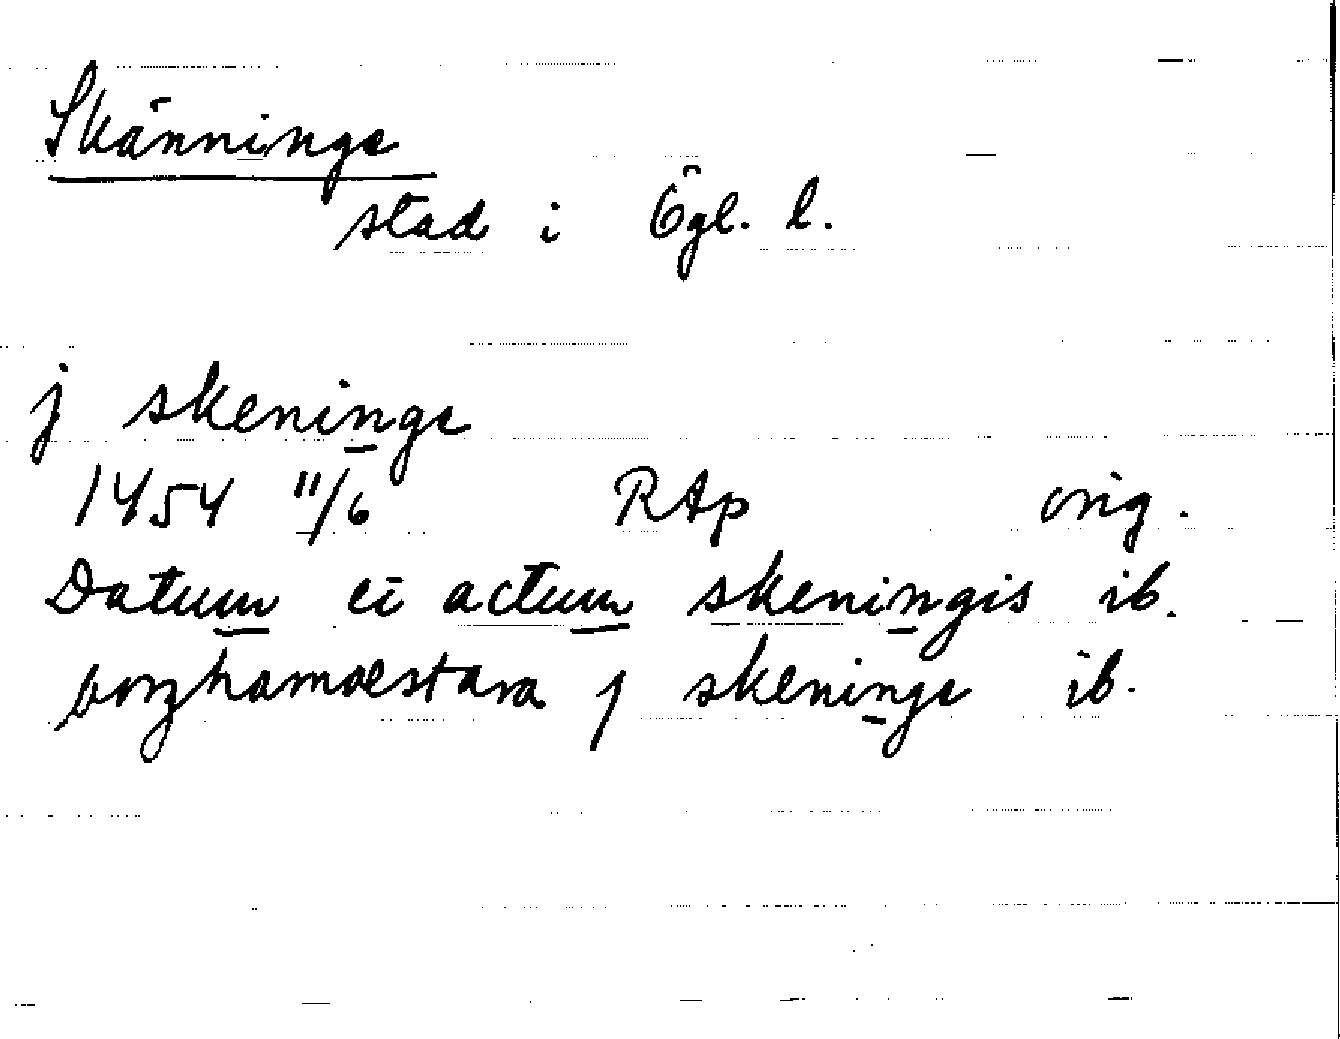 Skänninge
stad i Ögl. l.
j skeninge
1454 11/6 RAp orig.
Datum et actum skeningis ib.
borghamæstara j skeninge ib.